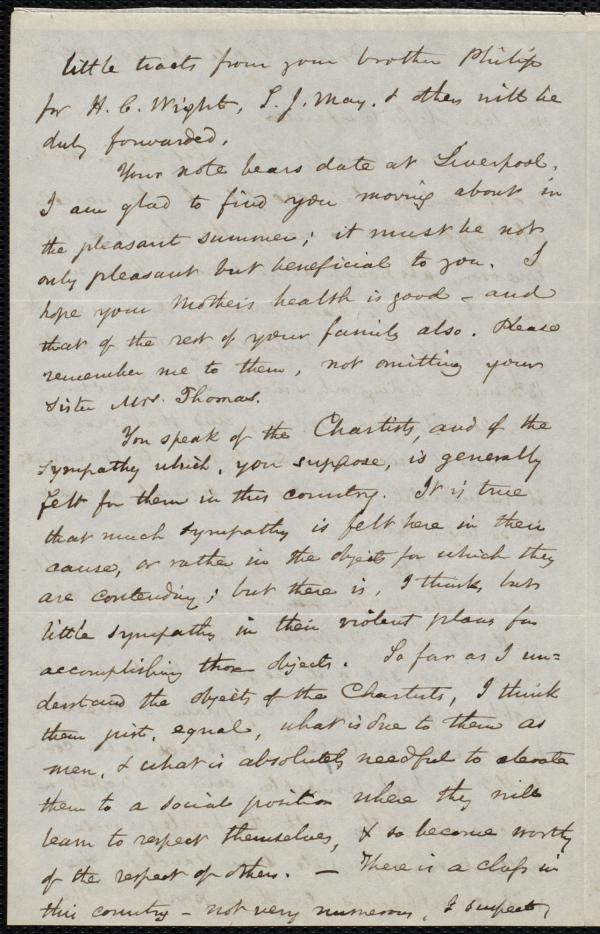 little tracts from your brother Philip
for H. C. Wright, S. J. May, & others will be
duly forwarded.
Your note bears date at Liverpool.
I am glad to find you moving about in
the pleasant summer; it must be not
only pleasant but beneficial to you. I
hope your Mother's health is good - and
that of the rest of your family also. Please
remember me to them, not omitting your
sister Mrs. Thomas.
You speak of the Chartists, and of the
sympathy which, you suppose, is generally
felt for them in this country. It is true
that much sympathy is felt here in their
cause, or rather in the objects for which they
are contending; but there is, I think, but
little sympathy in their violent plans for
accomplishing those objects. So far as I un=
derstand the objects of the Chartists, I think
them just, equal, what is due to them as
men, & what is absolutely needful to elevate
them to a social position where they will
learn to respect themselves, & so become worthy
of the respect of others. - There is a class in
this country - not very numerous, I suspect,